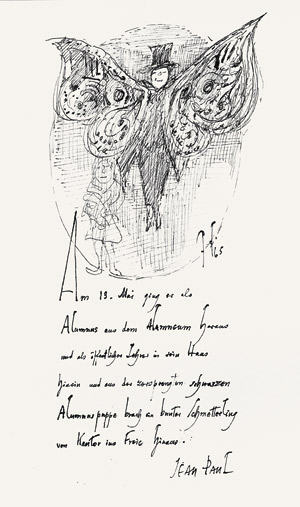 Am 13. Mai ging er als
Alumnus aus dem Alumneum heraus
und als öffentlicher Lehrer in sein Haus
hinein und aus der zersprengten schwarzen
Alumnuspuppe brach ein bunter Schmetterling
von Kantor ins Freie hinaus.
JEAN PAUL